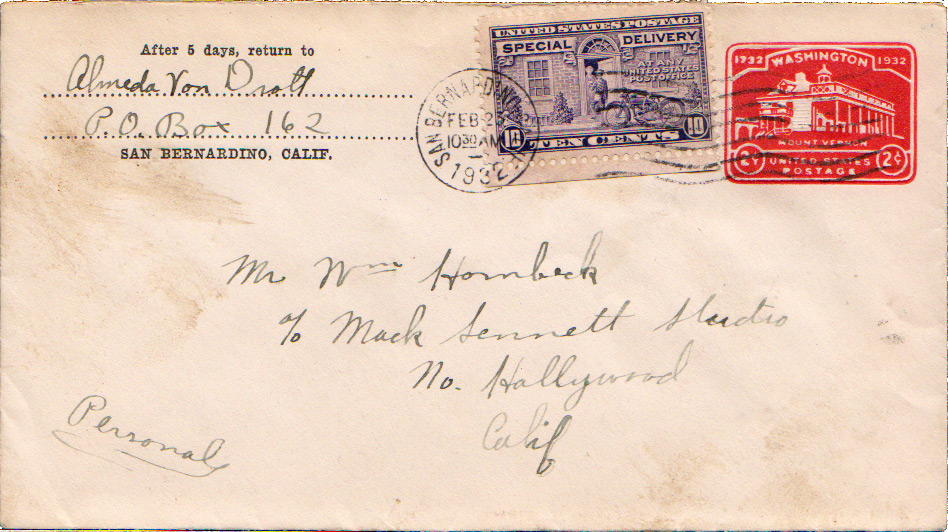 After 5 days, return to
Almeda Von Dratt
P.O. Box 162
SAN BERNARDINO, CALIF.
UNITED STATES POSTAGE
SPECIAL DELIVERY
AT ANY
UNITED STATES
POST OFFICE
10 TEN CENTS 10
SAN BERNARDINO
FEB 2
10 30 AM
1932
1732 WASHINGTON 1932
MOUNT VERNON
2¢ UNITED STATES 2¢
POSTAGE
Mr Wm Hornbeck
c/o Mack Sennett Studio
No. Hollywood
Calif
Personal